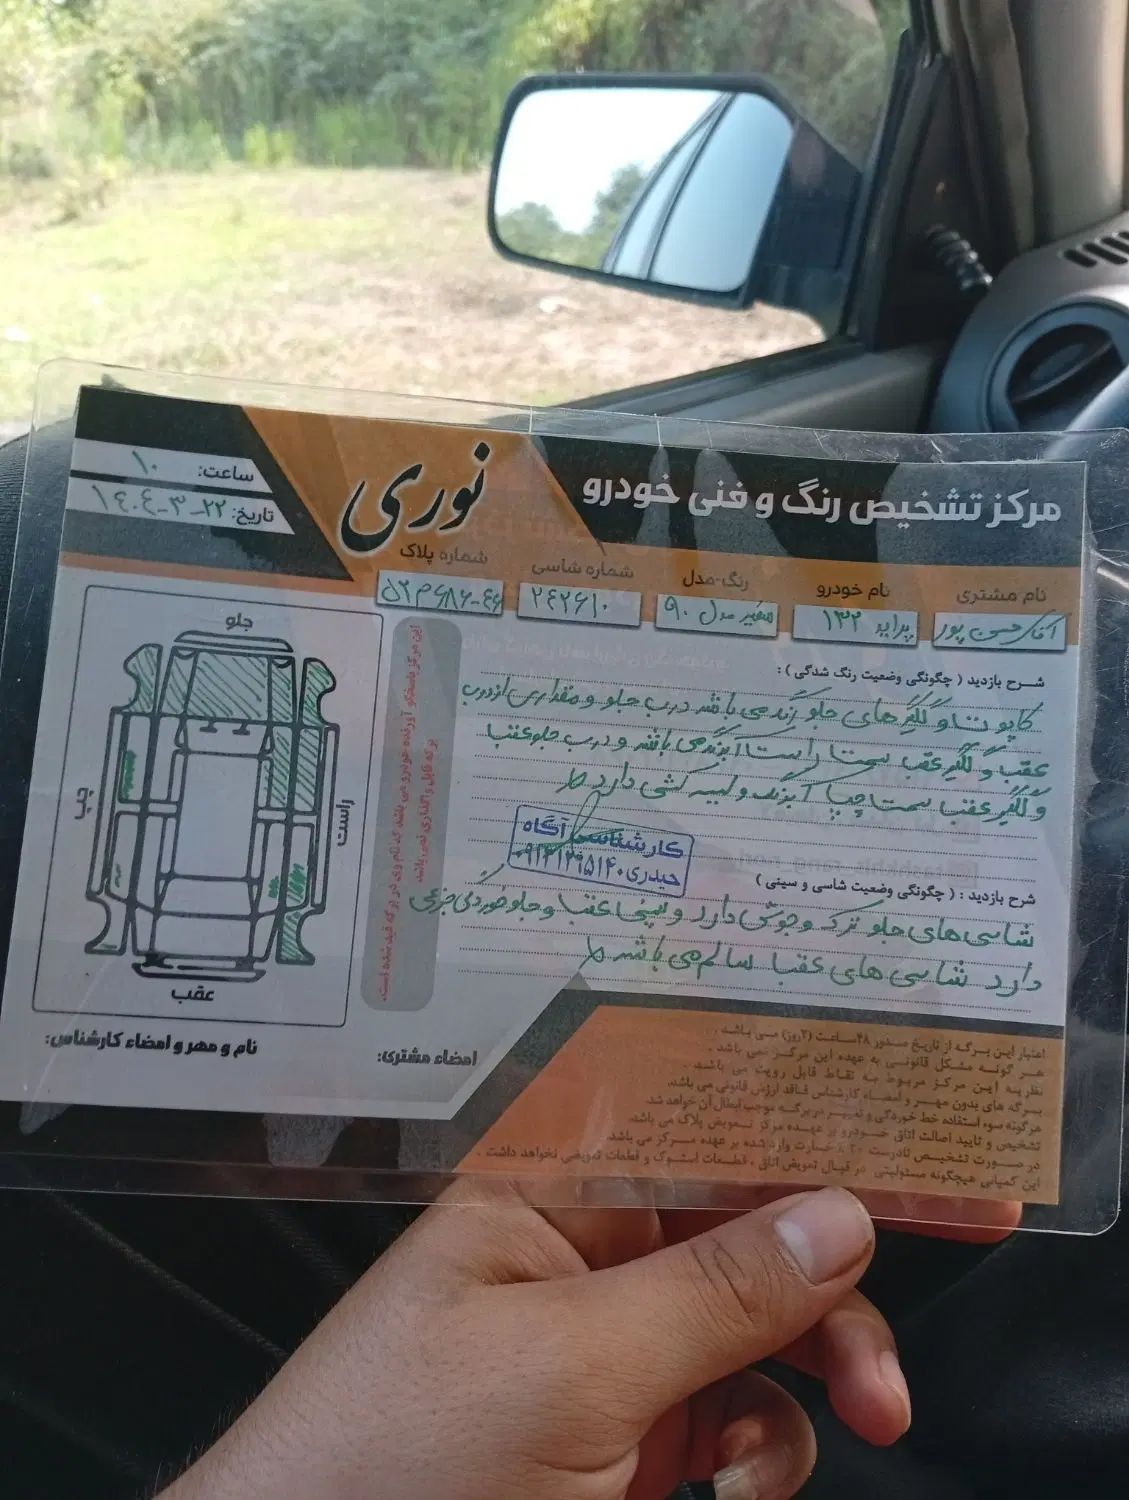 مرکز تشخیص رنگ و فنی خودرو
نوری
ساعت: ۱۰
تاریخ: ۲۲-۳-۱۴۰۴
نام مشتری
آقای حسن پور
نام خودرو
پراید ۱۳۲
رنگ-مدل
سفید مدل ۹۰
شماره شاسی
۲۴۲۶۱۰
شماره پلاک
۵۲م۶۸۶-۴۶
شرح بازدید ( چگونگی وضعیت رنگ شدگی ) :
کاپوت و گلگیرهای جلو رنگ می باشد درب جلو و مقداری از درب
عقب و گلگیر عقب سمت راست آبرنگ می باشد و درب جلو عقب
و گلگیر عقب سمت چپ آبرنگ و لیسه کشی دارد
کارشناسی آگاه
حیدری ۰۹۱۲۱۲۹۵۱۴۰
شرح بازدید : ( چگونگی وضعیت شاسی و سینی )
شاسی های جلو ترک و جوش دارد و سینی عقب و جلو خوردگی جزئی
دارد شاسی های عقب سالم می باشد
این مرکز پاسخگو آورنده خودرو می باشد که نام وی در برگه قید شده است.
برگه قابل واگذاری نمی باشد
جلو
چپ
راست
عقب
نام و مهر و امضاء کارشناس:
امضاء مشتری:
اعتبار این برگه از تاریخ صدور ۴۸ساعت (۲روز) می باشد .
هر گونه مشکل قانونی به عهده این مرکز نمی باشد .
نظریه این مرکز مربوط به نقاط قابل رویت می باشد .
برگه های بدون مهر و امضاء کارشناس فاقد ارزش قانونی می باشد.
هرگونه سوء استفاده خط خوردگی و تغییر در برگه موجب ابطال آن خواهد شد.
تشخیص و تایید اصالت اتاق خودرو بر عهده مرکز تعویض پلاک می باشد.
در صورت تشخیص نادرست ۲۰٪ خسارت وارد شده بر عهده مرکز می باشد.
این کمپانی هیچگونه مسئولیتی در قبال تعویض اتاق ، قطعات استوک و قطعات تعویضی نخواهد داشت .